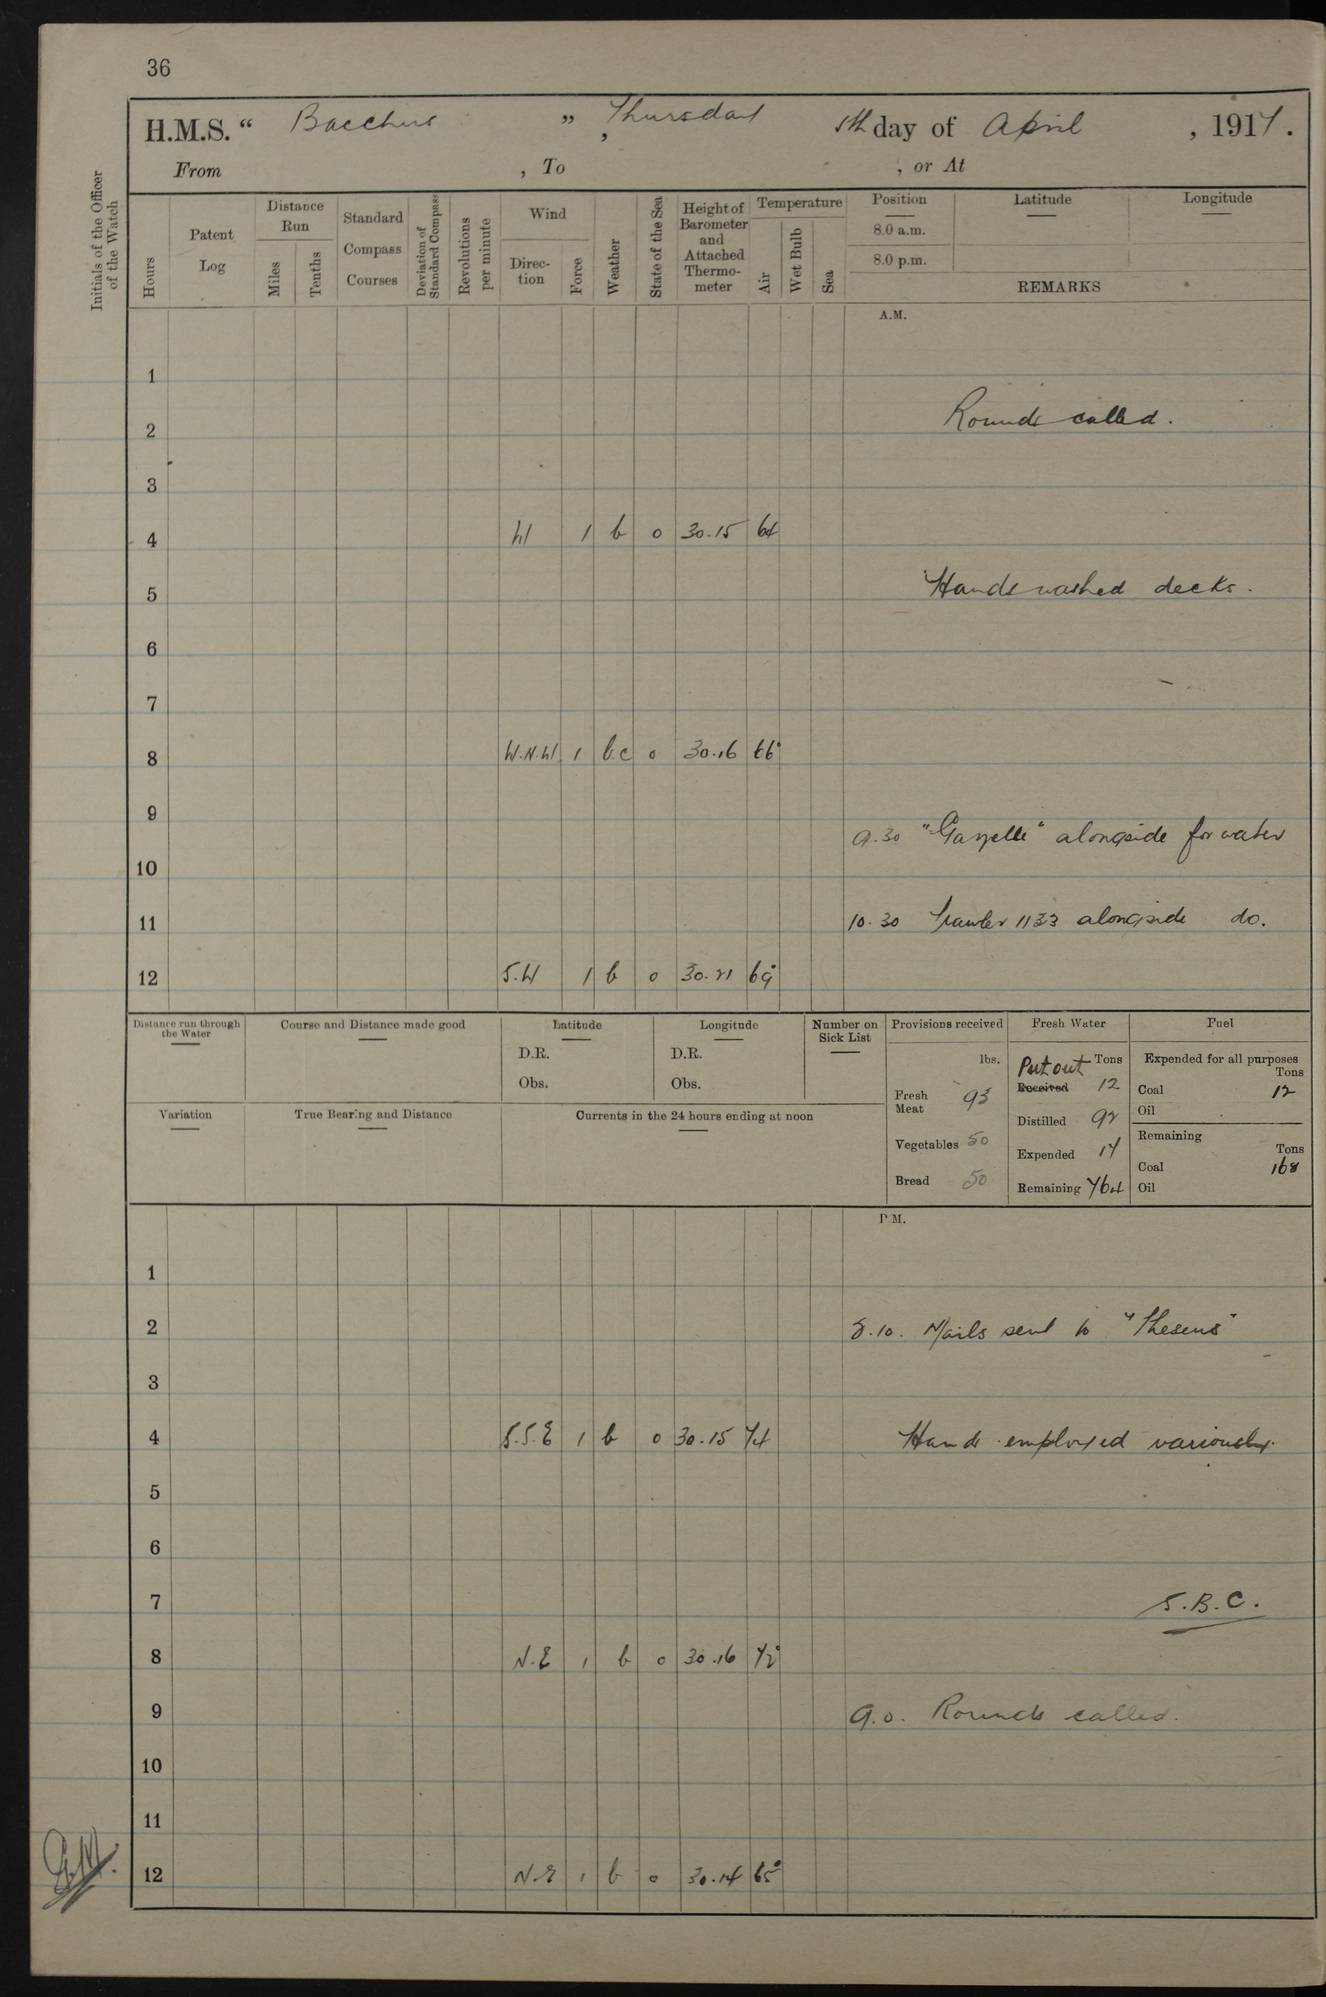 36
H.M.S. “ Bacchus ” , Thursday 5th day of April , 1917 .
From , To , or At
Initials of the Officer of the Watch
Hours
Patent Log
Distance Run
Miles
Tenths
Standard Compass Courses
Deviation of Standard Compass
Revolutions per minute
Wind
Direc-tion
Force
Weather
State of the Sea
Height of Barometer and Attached Thermo-meter
Temperature
Air
Wet Bulb
Sea
Position Latitude Longitude
8.0 a.m.
8.0 p.m.
REMARKS
A.M.
1
2 Rounds called.
3
4 W 1 b 0 30.15 64
5 Hands washed decks.
6
7
8 W.N.W. 1 b.c 0 30.16 66°
9
9.30 "Gazelle" alongside for water
10
11 10.30 Trawler 1133 alongside do.
12 S.W 1 b 0 30.21 69°
Distance run through the Water
Course and Distance made good
Latitude
D.R.
Obs.
Longitude
D.R.
Obs.
Number on Sick List
Provisions received
lbs.
Fresh Meat 93
Vegetables 50
Bread 50
Fresh Water
Put out Tons
Received 12
Distilled 92
Expended 17
Remaining 764
Fuel
Expended for all purposes
Tons
Coal 12
Oil
Remaining
Tons
Coal 168
Oil
Variation
True Bearing and Distance
Currents in the 24 hours ending at noon
P.M.
1
2 2.10. Mails sent to "Theseus"
3
4 S.S.E 1 b 0 30.15 74 Hands employed variously.
5
6
7 S.B.C.
8 N.E 1 b 0 30.16 72°
9 9.0. Rounds called.
10
11
12 N.E 1 b 0 30.14 65°